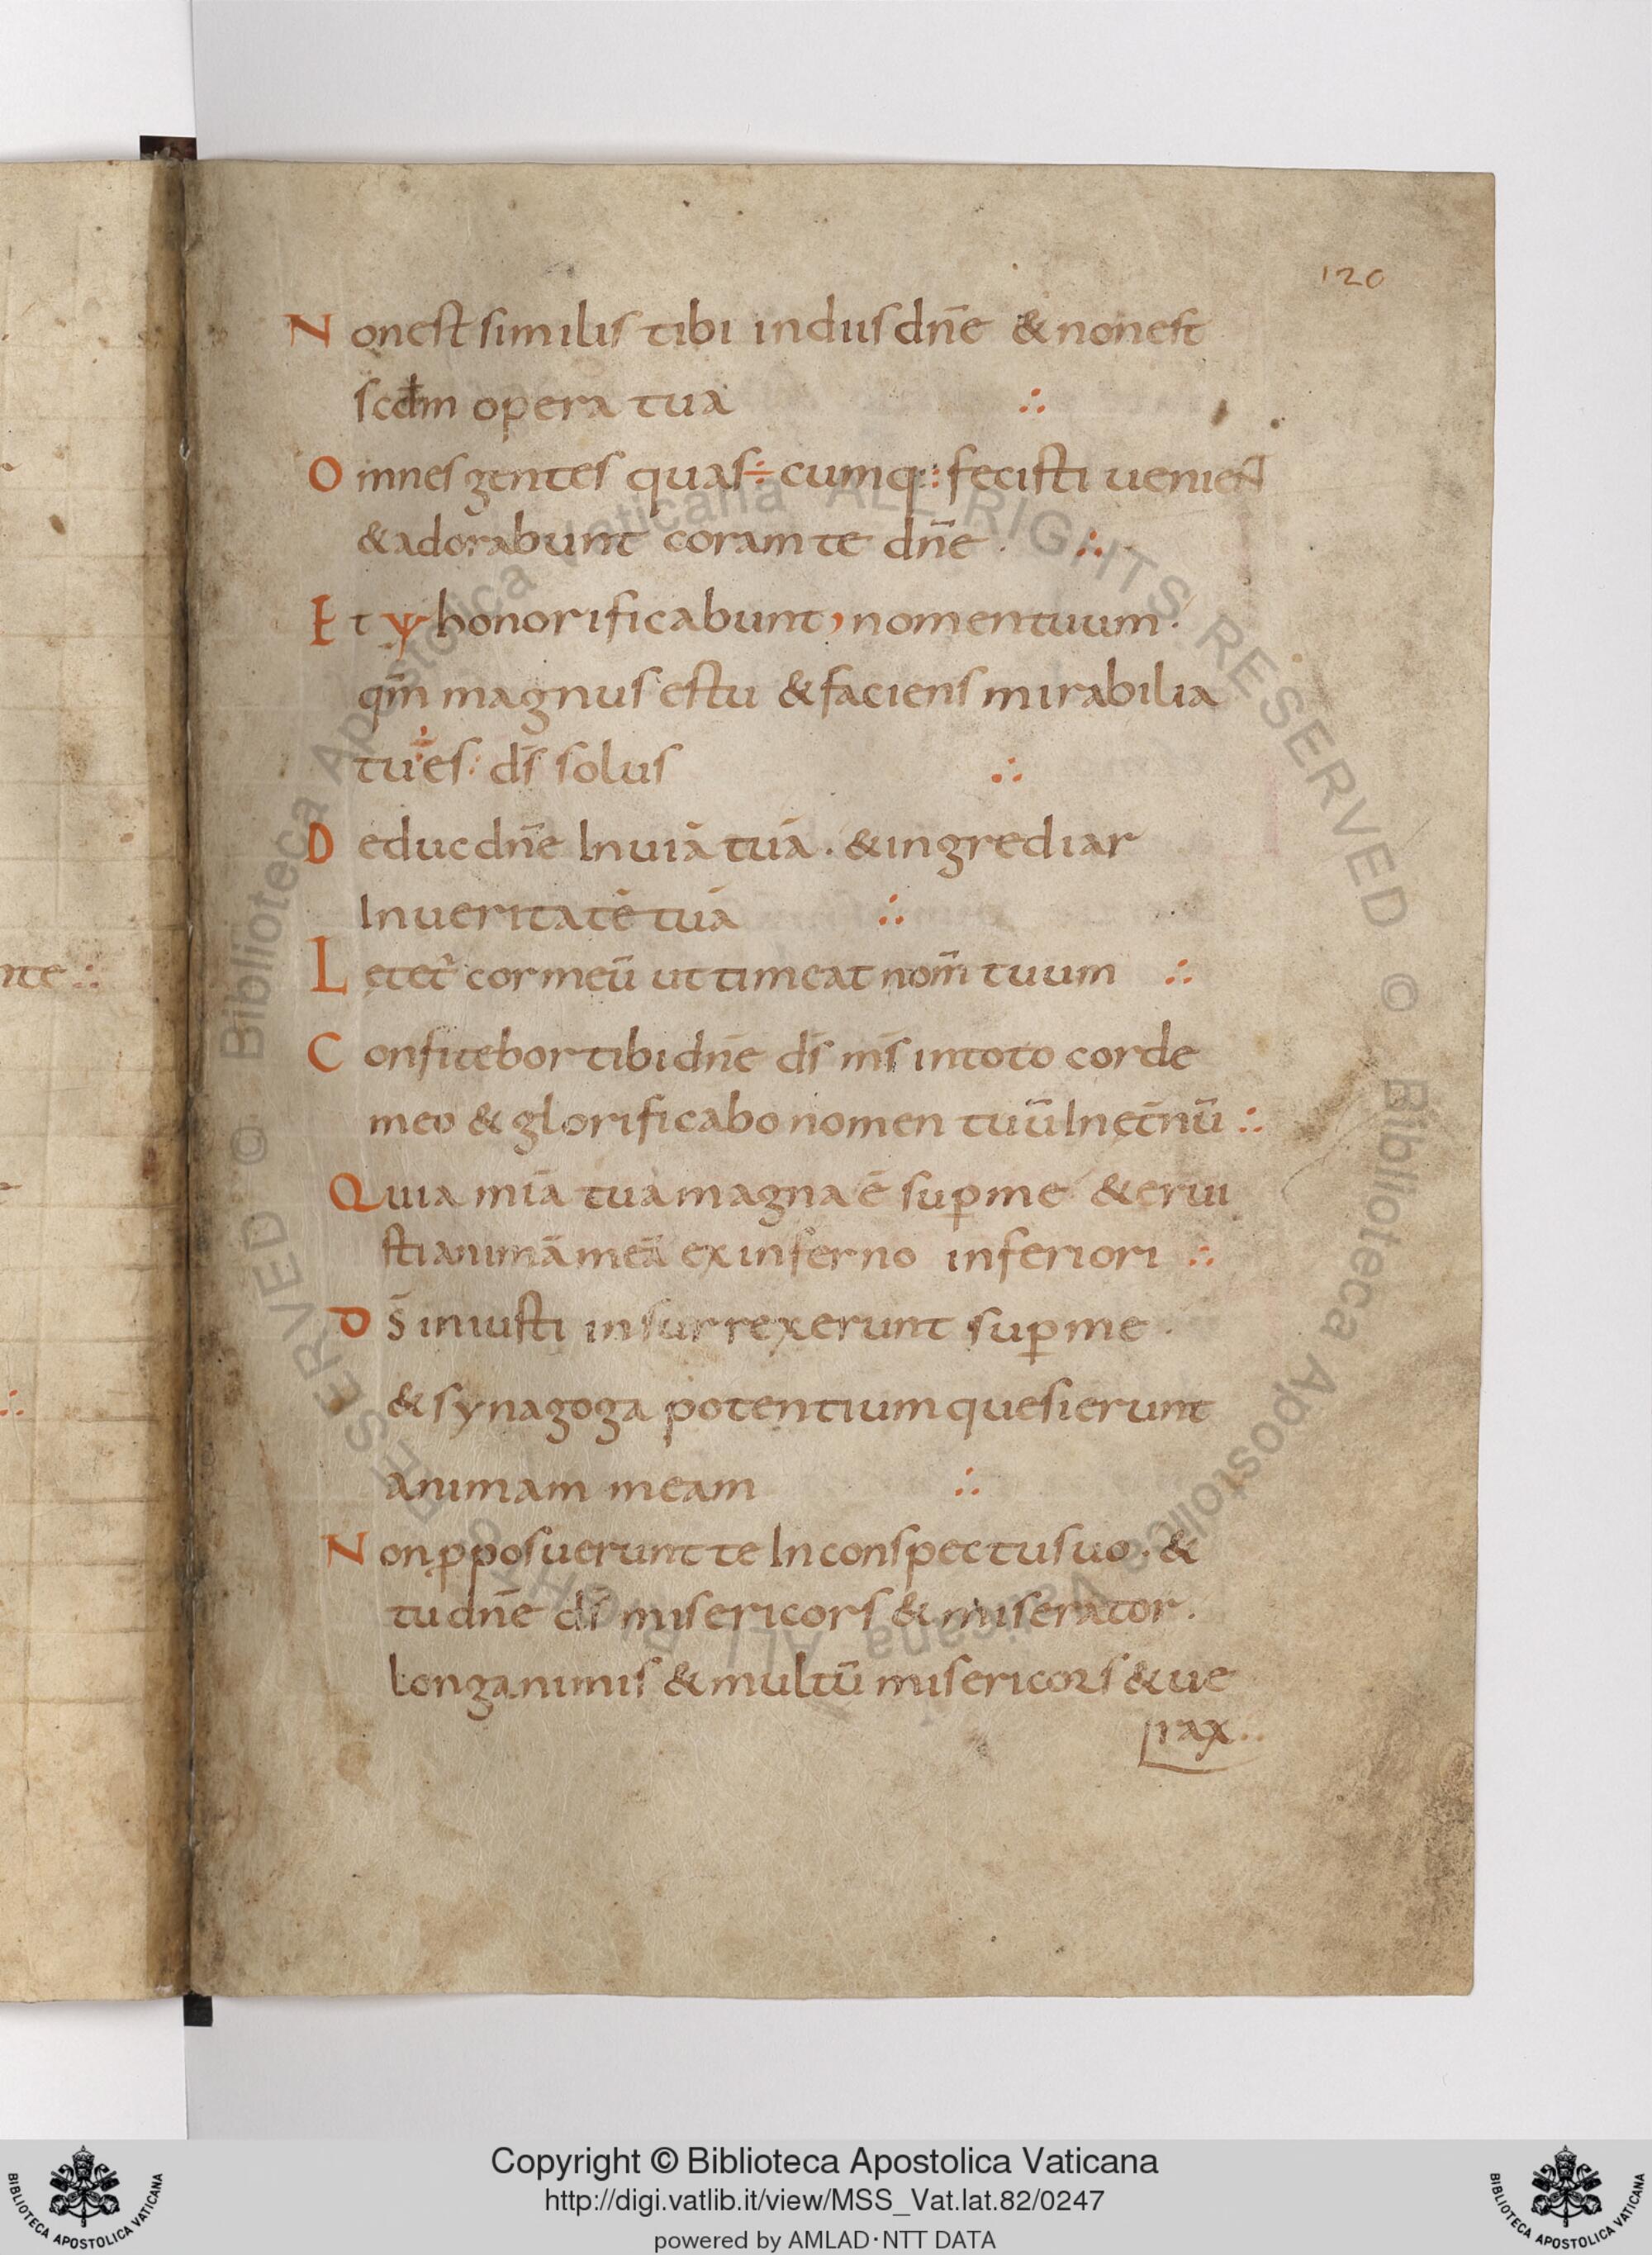 120
Non est similis tibi in diis dnē & non est
scdm opera tua ∴
Omnes gentes quas÷cumq:: fecisti uenient
& adorabunt coram te dnē . ∴
Et ψ honorificabunt, nomen tuum.
qm̄ magnus es tu & faciens mirabilia
tu ÷ es: ds̄ solus ∴
Deduc dnē In uiā tuā . & ingrediar
In ueritatē tuā ∴
Letet̄ cor meū ut timeat nom̄ tuum ∴
Confitebor tibi dnē ds̄ ms̄ in toto corde
meo & glorificabo nomen tuū In et̄nū ∴
Quia mīa tua magna ē sup̱ me & erui
sti animā meā ex inferno inferiori ∴
Ds̄ iniusti insurrexerunt sup̱ me .
& synagoga potentium quesierunt
animam meam ∴
Non pposuerunt te In conspectu suo . &
tu dnē ds̄ misericors & miserator .
Longanimis & multū misericors & ue
rax ∴
nte ∴
Copyright © Biblioteca Apostolica Vaticana
http://digi.vatlib.it/view/MSS_Vat.lat.82/0247
powered by AMLAD·NTT DATA
BIBLIOTECA APOSTOLICA VATICANA
BIBLIOTECA APOSTOLICA VATICANA
© Biblioteca Apostolica Vaticana ALL RIGHTS RESERVED
© Biblioteca Apostolica Vaticana ALL RIGHTS RESERVED